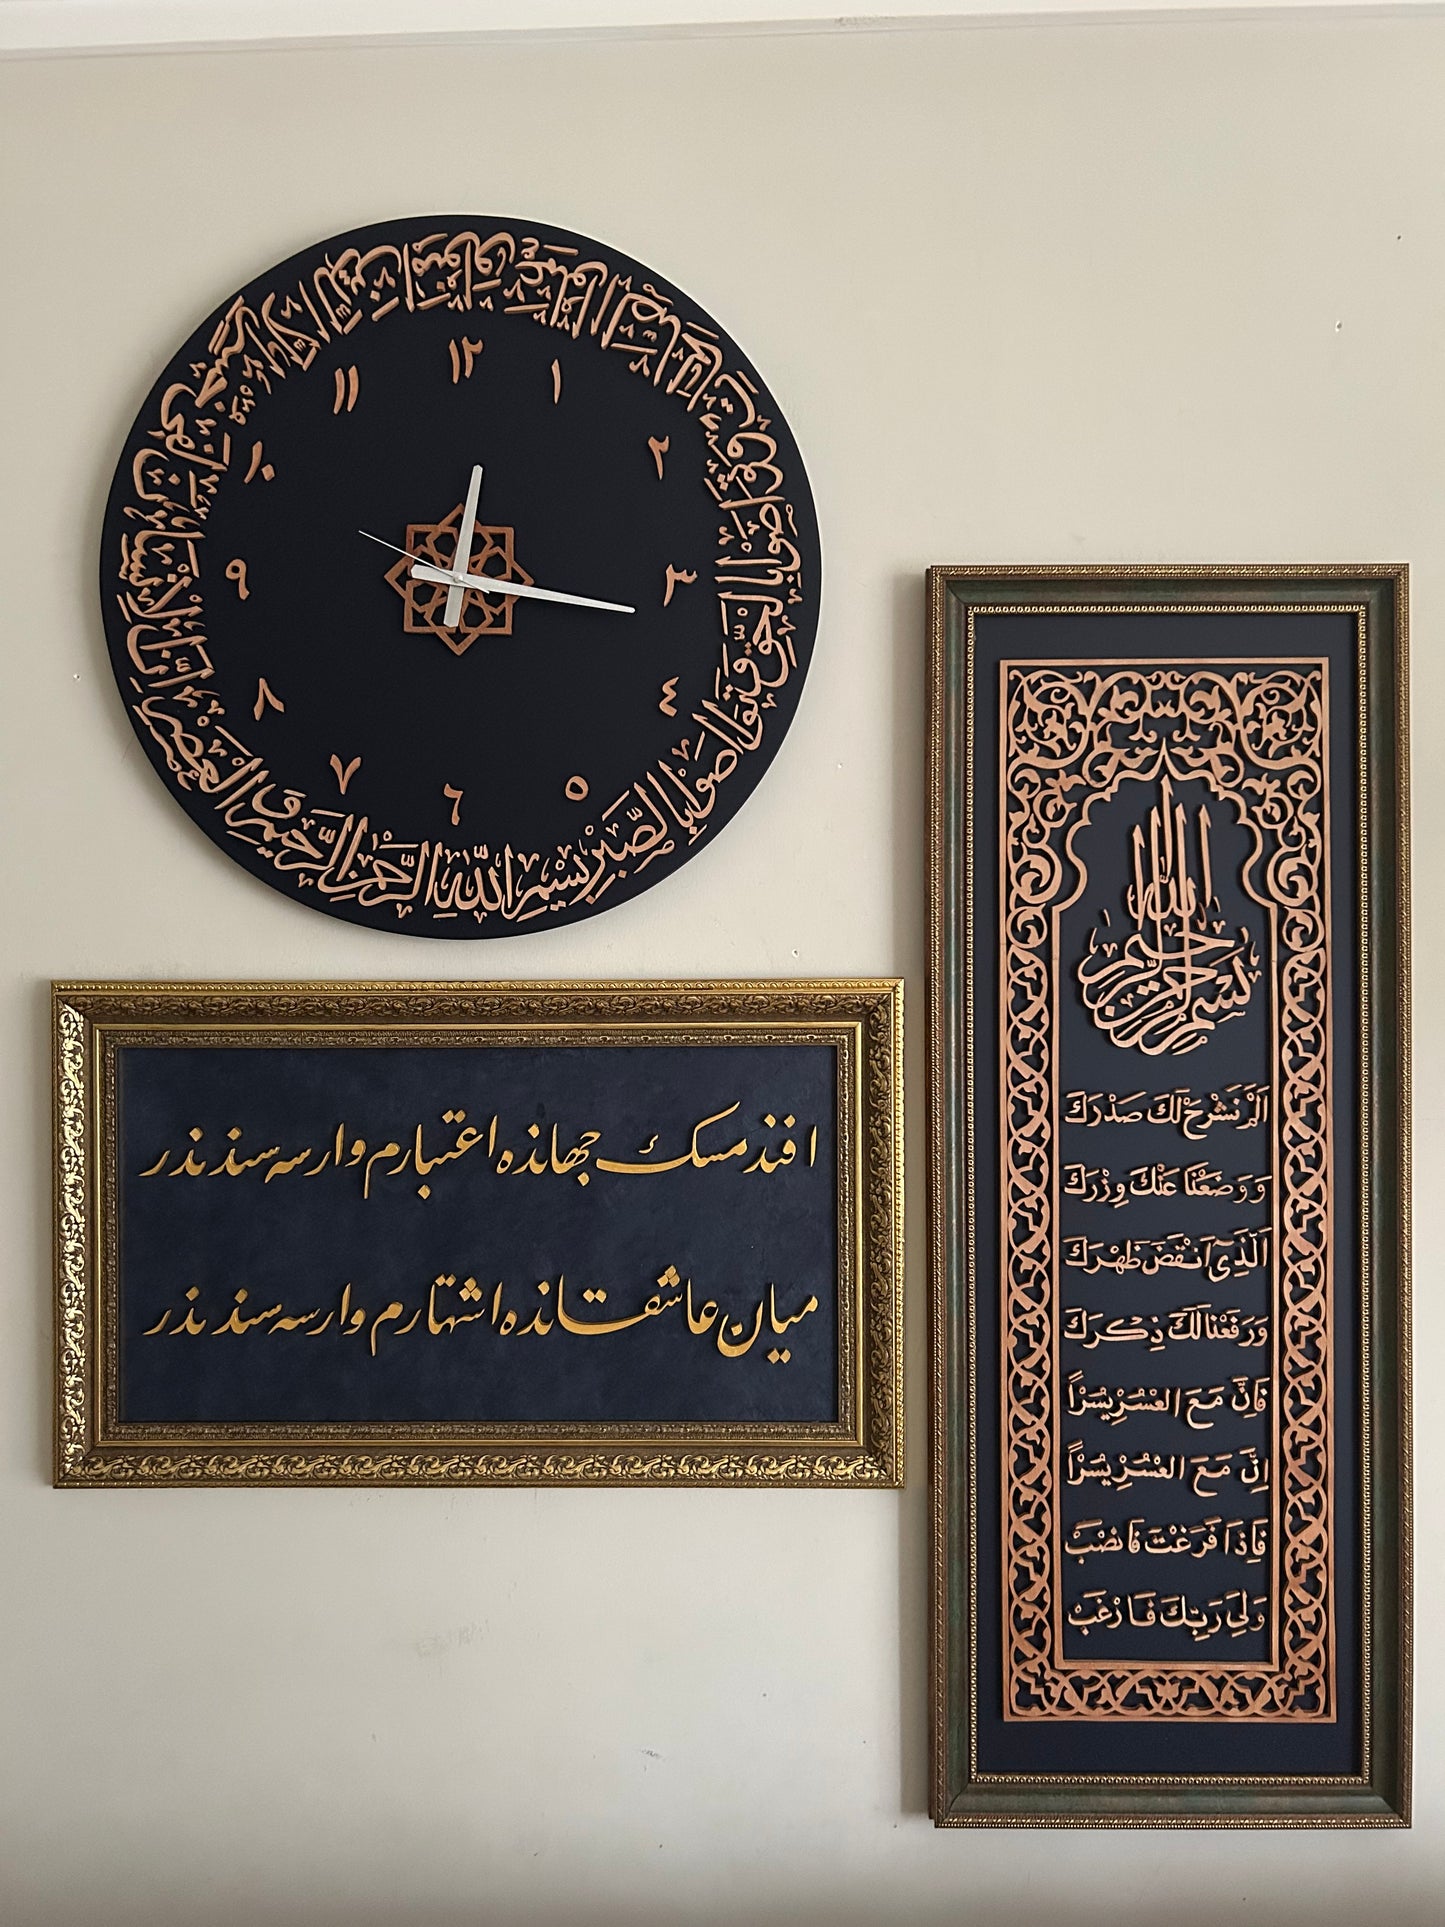 بِسْمِ اللّٰهِ الرَّحْمٰنِ الرَّحِيمِ وَالْعَصْرِ اِنَّ الْاِنْسَانَ لَفِى خُسْرٍ اِلَّا الَّذِينَ اٰمَنُوا وَعَمِلُوا الصَّالِحَاتِ وَتَوَاصَوْا بِالْحَقِّ وَتَوَاصَوْا بِالصَّبْرِ
١٢
١
٢
٣
٤
٥
٦
٧
٨
٩
١٠
١١
افندمسك جهانده اعتبارم وارسه سندندر
ميان عاشقانده اشتهارم وارسه سندندر
بسم الله الرحمن الرحيم
اَلَمْ نَشْرَحْ لَكَ صَدْرَكَ
وَوَضَعْنَا عَنْكَ وِزْرَكَ
اَلَّذِىٓ اَنْقَضَ ظَهْرَكَ
وَرَفَعْنَا لَكَ ذِكْرَكَ
فَاِنَّ مَعَ الْعُسْرِ يُسْرًا
اِنَّ مَعَ الْعُسْرِ يُسْرًا
فَاِذَا فَرَغْتَ فَانْصَبْ
وَلِىَ رَبِّكَ فَارْغَبْ